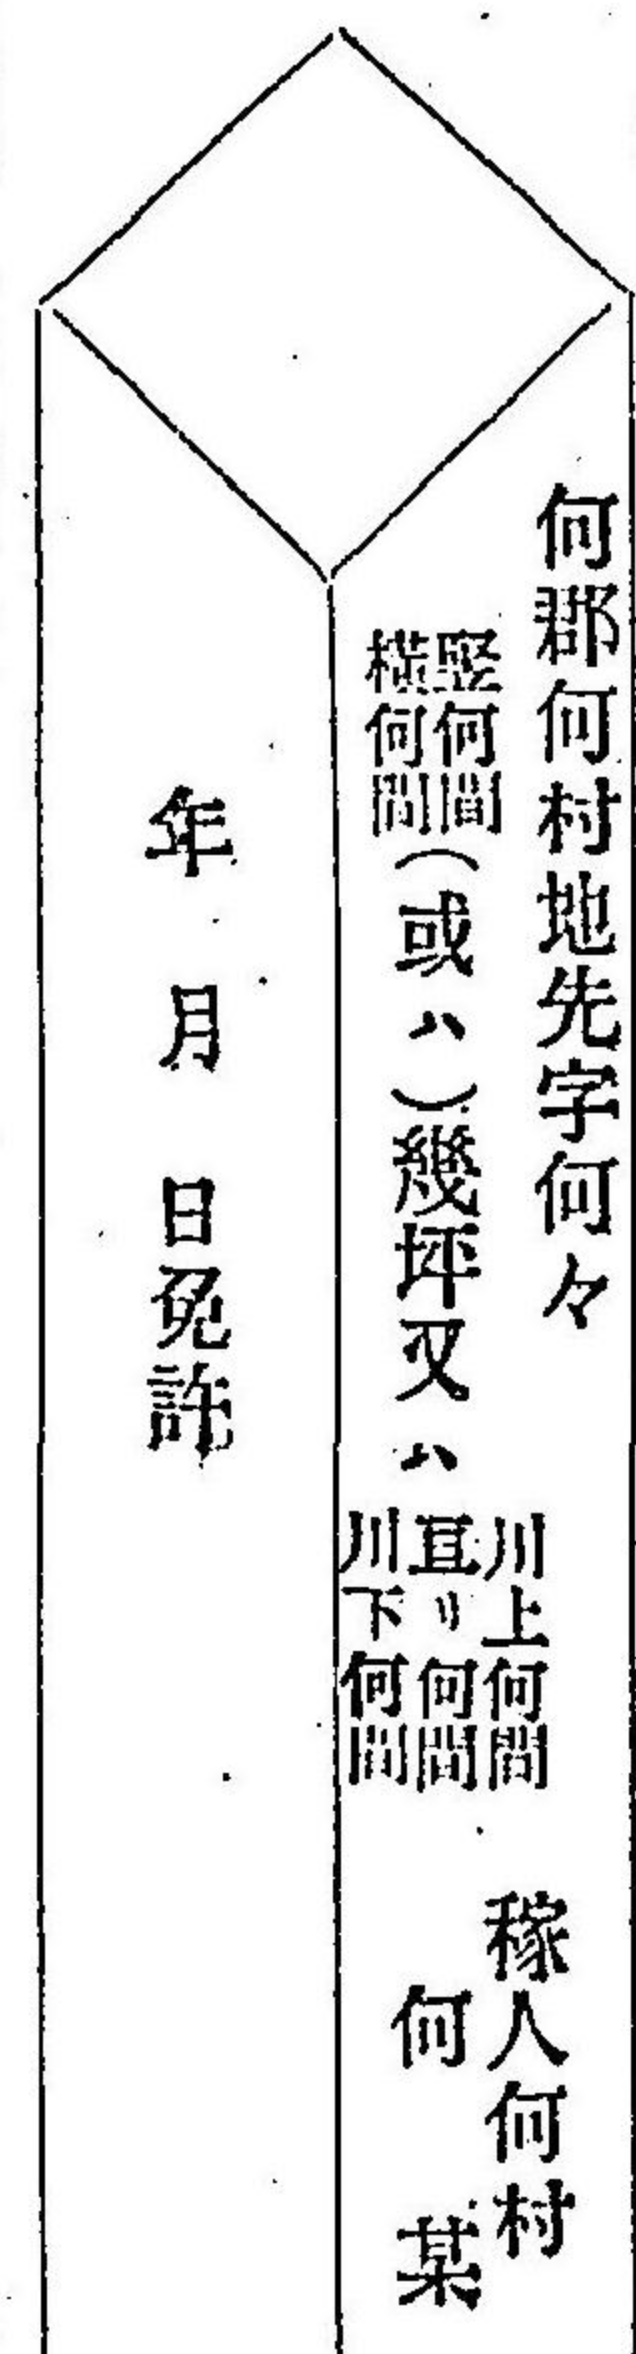 何郡何村地先字何々
竪何間
横何間
(或ハ)幾坪又ハ
川上何間
亘リ何間
川下何間
稼人何村
何某
年月日免許